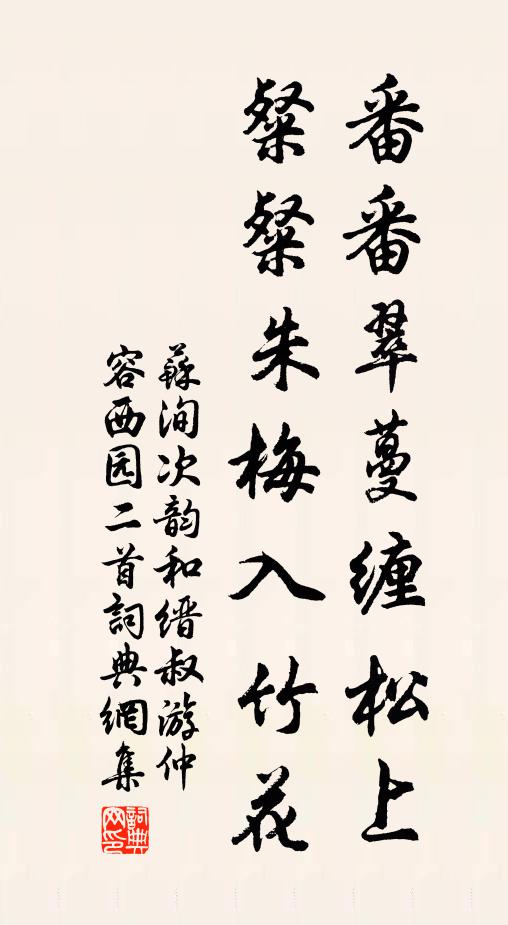 番番翠蔓缠松上
粲粲朱梅入竹花
蘇洵次韵和缙叔游仲
容西园二首詞典網集
詞典網印